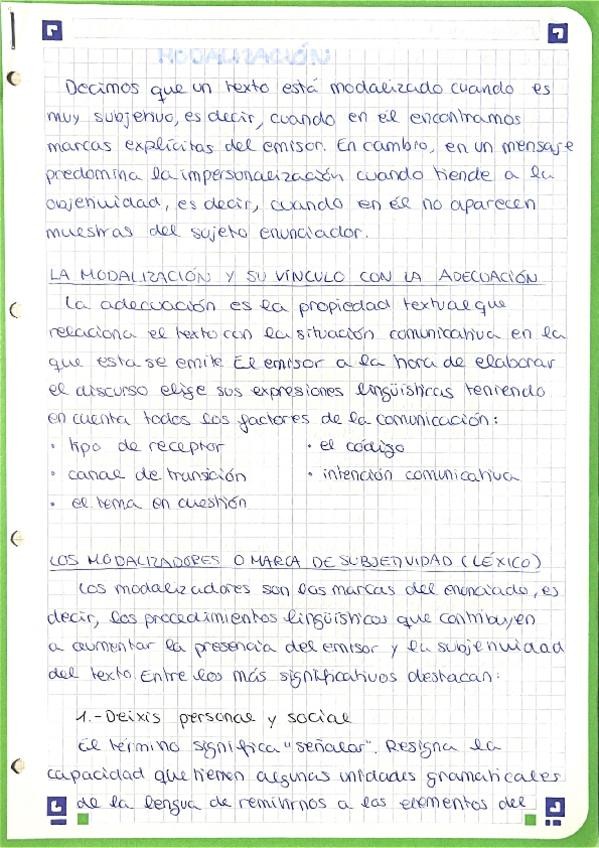 MODALIZACIÓN
Decimos que un texto está modalizado cuando es
muy subjetivo, es decir, cuando en él encontramos
marcas explícitas del emisor. En cambio, en un mensaje
predomina la impersonalización cuando tiende a la
objetividad, es decir, cuando en él no aparecen
muestras del sujeto enunciador.
LA MODALIZACIÓN Y SU VÍNCULO CON LA ADECUACIÓN
La adecuación es la propiedad textual que
relaciona el texto con la situación comunicativa en la
que esta se emite El emisor a la hora de elaborar
el discurso elige sus expresiones lingüísticas teniendo
en cuenta todos los factores de la comunicación:
· tipo de receptor · el código
· canal de transición · intención comunicativa
· el tema en cuestión
LOS MODALIZADORES O MARCA DE SUBJETIVIDAD (LÉXICO)
Los modalizadores son las marcas del enunciado, es
decir, los procedimientos lingüísticos que contribuyen
a aumentar la presencia del emisor y la subjetividad
del texto. Entre los más significativos destacan:
1.- Deixis personal y social
El término significa "señalar". Resigna la
capacidad que tienen algunas unidades gramaticales
de la lengua de remitirnos a los elementos del